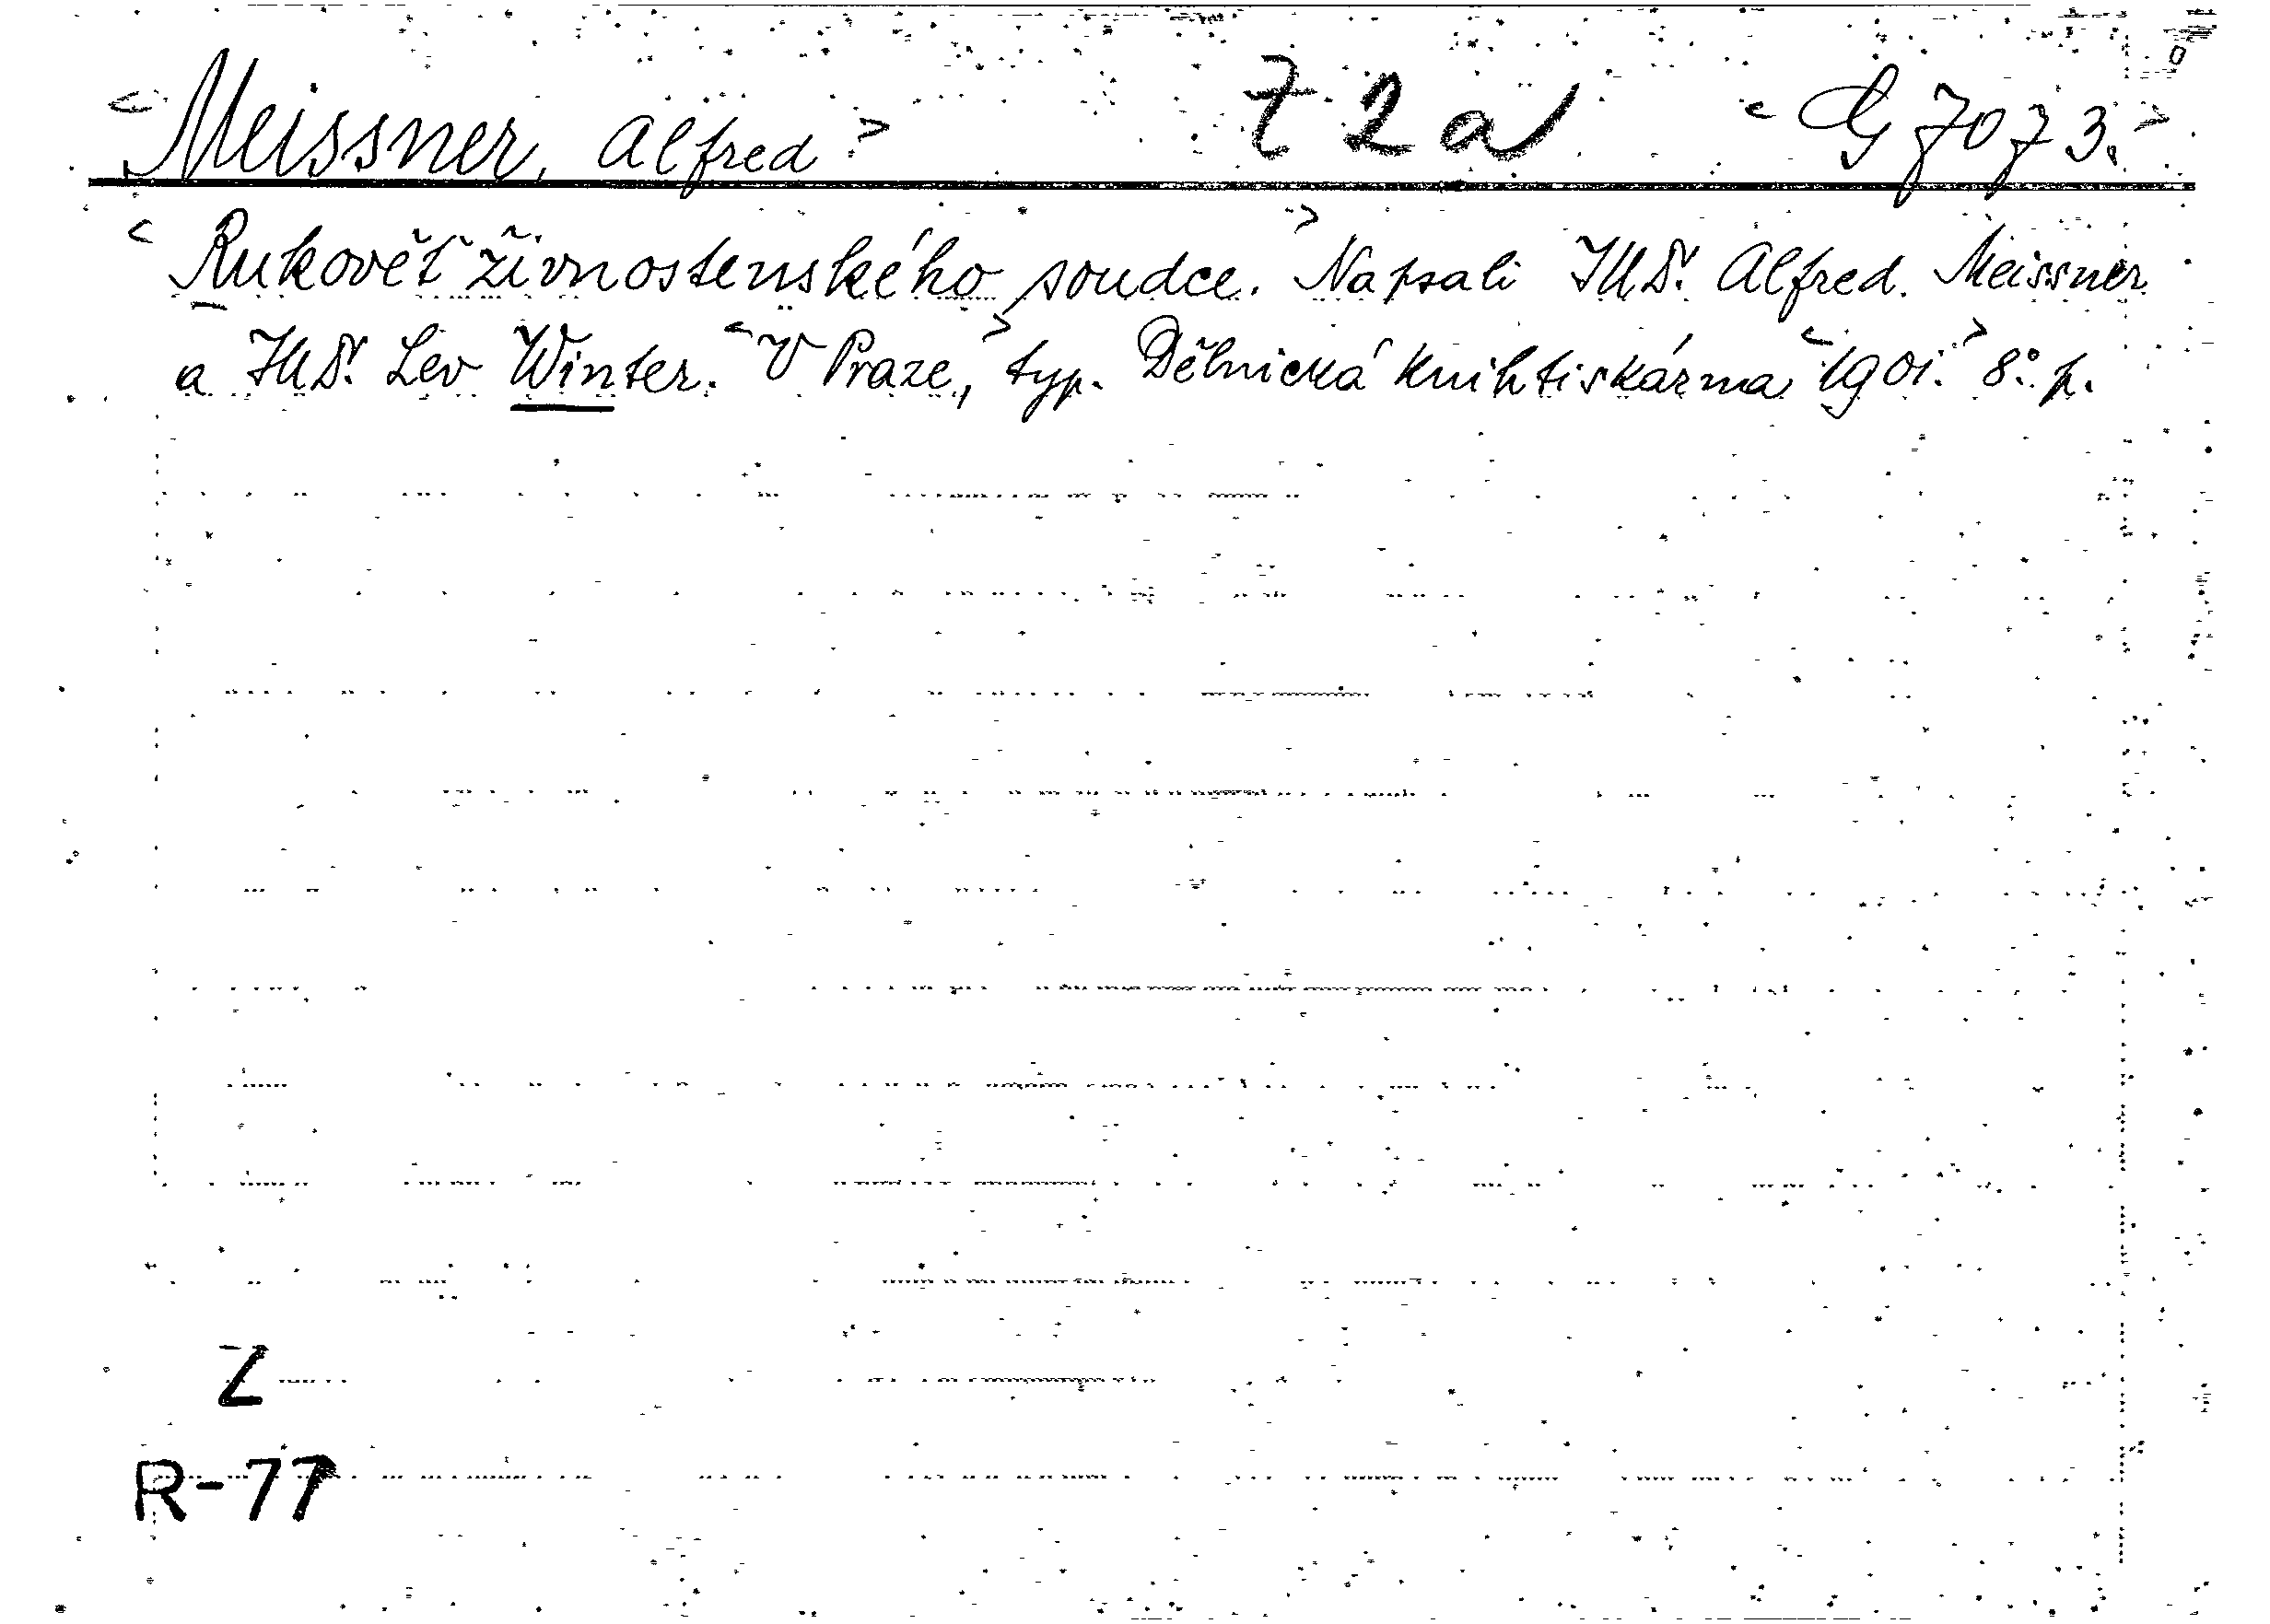 <Meissner, Alfred> Z 2 a <G 7073.>
<Rukověť živnostenského soudce.> Napsali JUDr. Alfred Meissner
a JUDr. Lev Winter. <V Praze,> typ. Dělnická knihtiskárna <1901.> 8°. p.
Z
R-77